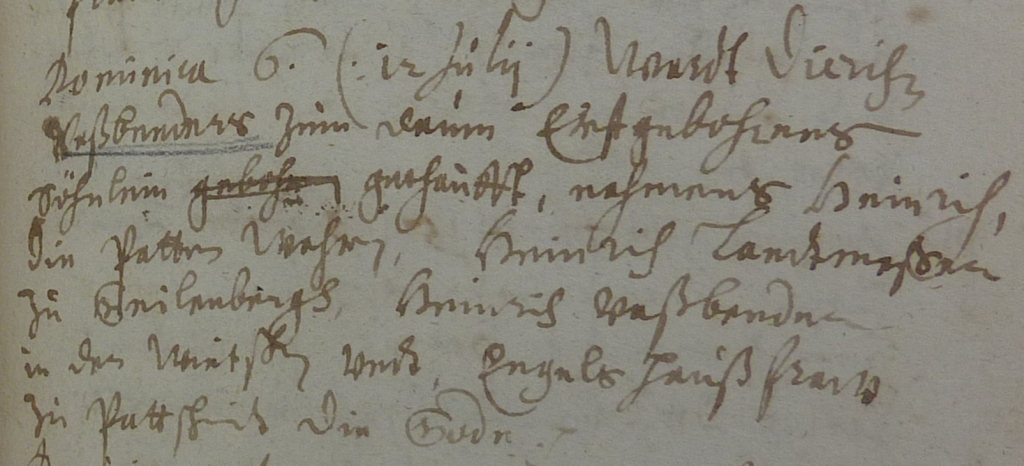 Dominica 6. (: 12 Julij) Wardt Dierich
Vaßbenders zum daum Erstgebohrens
Söhnlein gebohrn gethaufft, nahmens Heinrich,
die Patten Wahren, Heinrich Landtmeßer
zu Geilenbergh, Heinrich Vaßbender
in der Wietschen Undt, Engels haußfraw
zu Pattscheid die Gode.